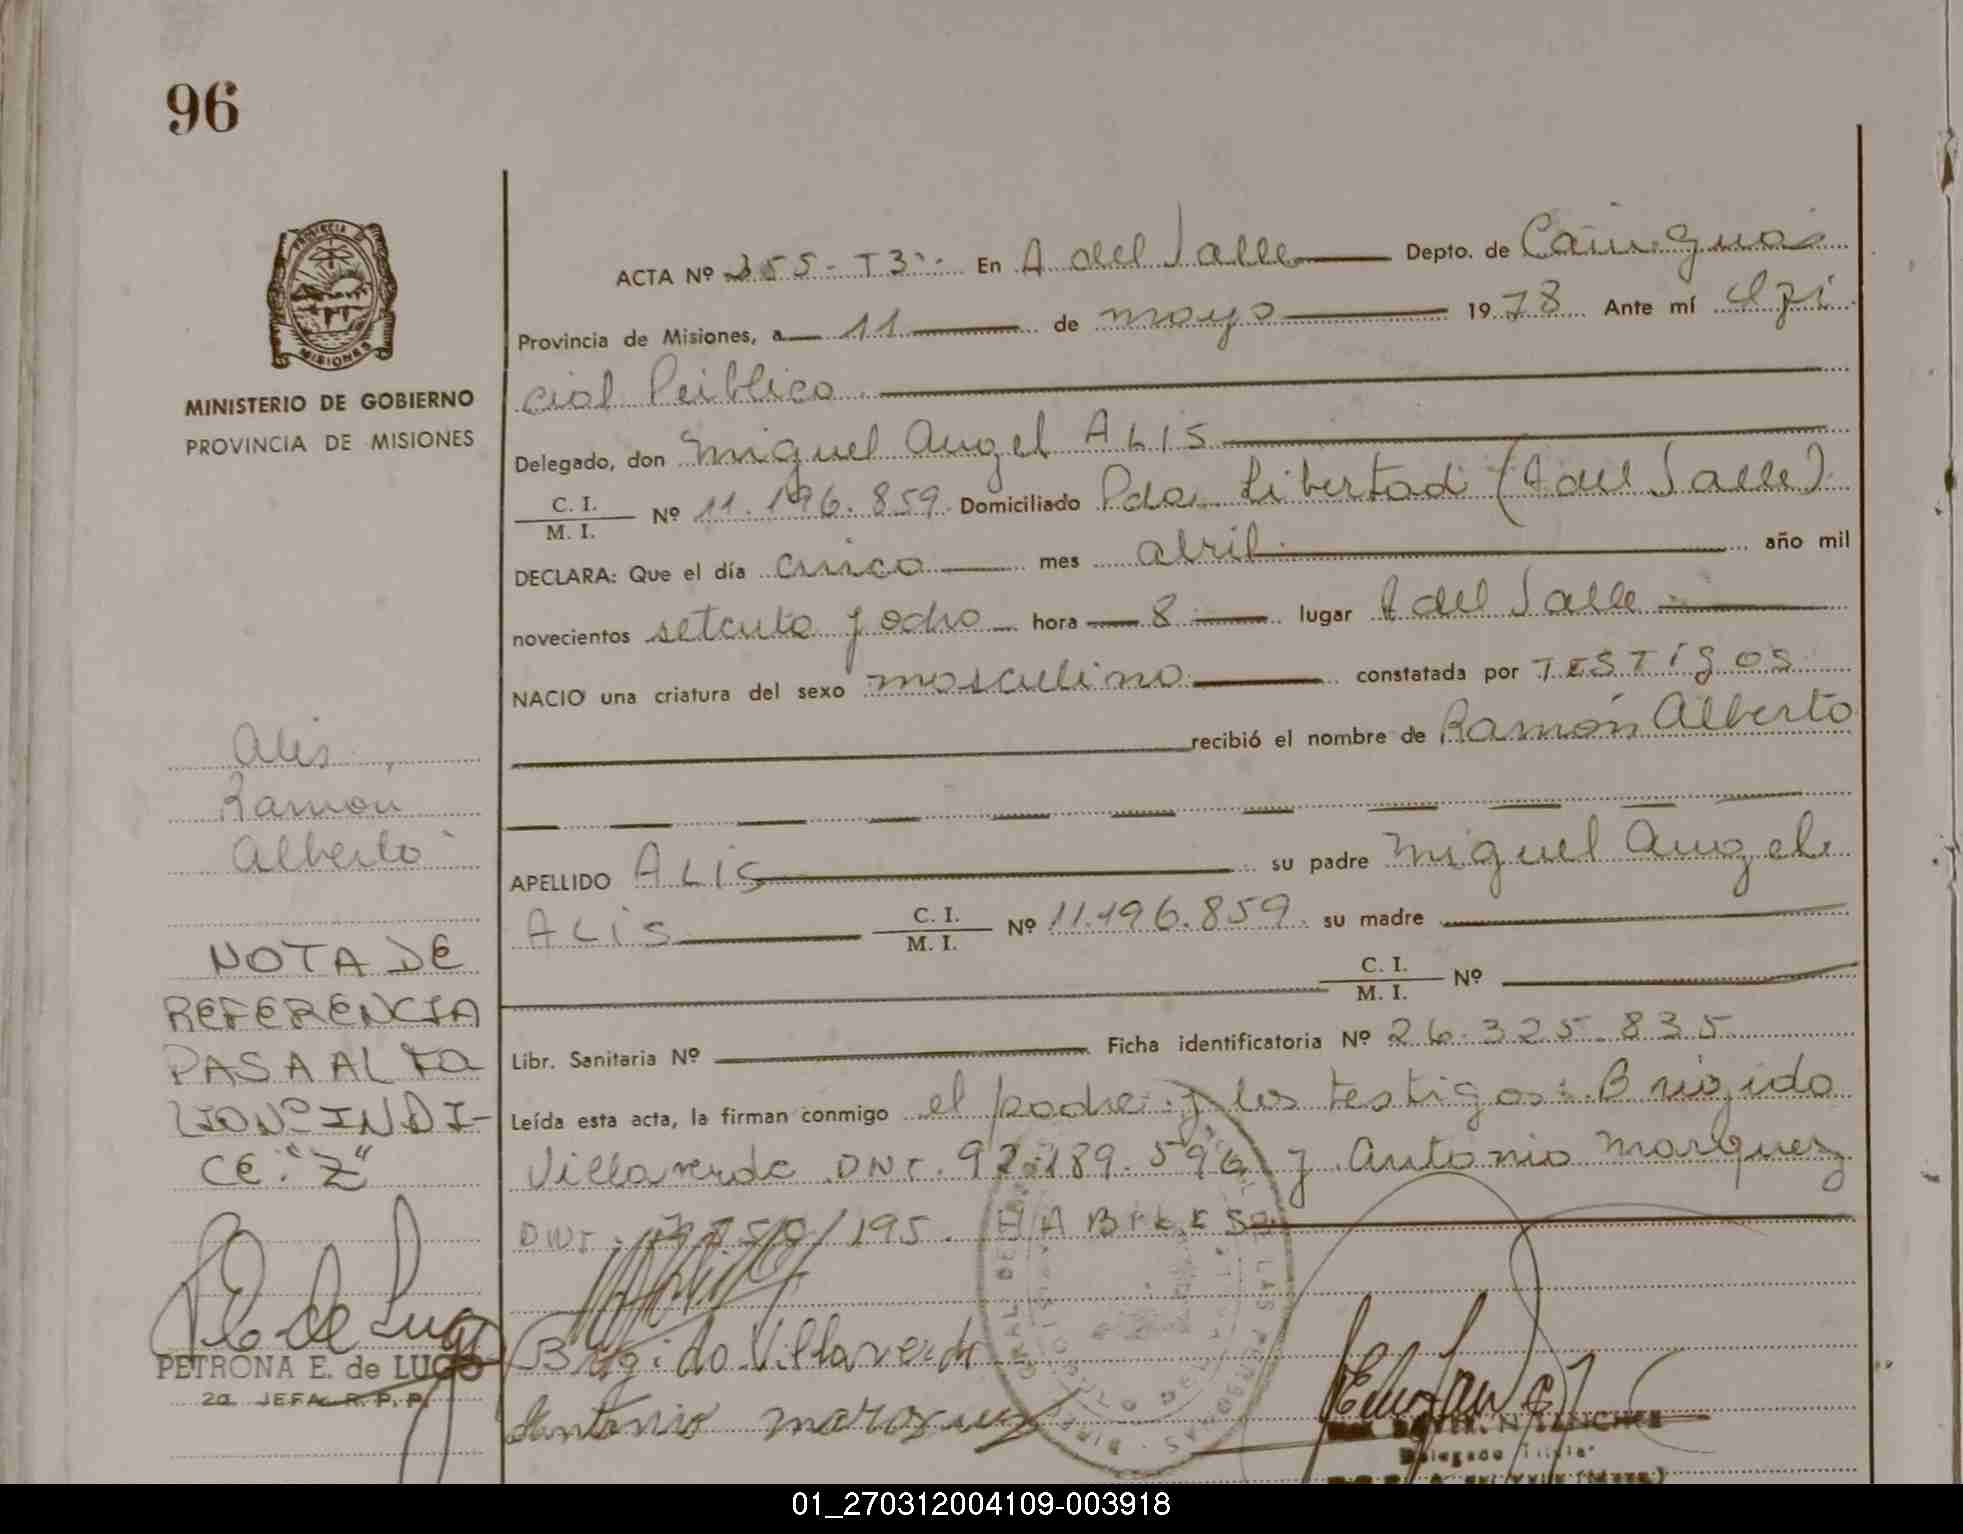 96
PROVINCIA DE
MISIONES
MINISTERIO DE GOBIERNO
PROVINCIA DE MISIONES
Alis,
Ramon
Alberto
NOTA DE
REFERENCIA
PASA AL FO
LIO Nº INDI-
CE: "Z"
PETRONA E. de LUGO
2a JEFA R. P. P.
ACTA Nº 355 - T3 En A del Valle Depto. de Cainguas
Provincia de Misiones, a 11 de mayo 1978 Ante mí Ofi
cial Público
Delegado, don Miguel Angel ALIS
C. I. / M. I. Nº 11.196.859 Domiciliado Pda Libertad (A del Valle)
DECLARA: Que el día cinco mes abril año mil
novecientos setenta y ocho hora 8 lugar A del Valle
NACIO una criatura del sexo masculino constatada por TESTIGOS
recibió el nombre de Ramón Alberto
APELLIDO ALIS su padre Miguel Angel
ALIS C. I. / M. I. Nº 11.196.859 su madre
C. I. / M. I. Nº
Libr. Sanitaria Nº Ficha identificatoria Nº 26.325.835
Leída esta acta, la firman conmigo el padre y los testigos: Brigido
Villaverde DNI. 92.189.596 y Antonio Marquez
DNI. HABILES
Brigido Villaverde
Antonio marquez
01_270312004109-003918